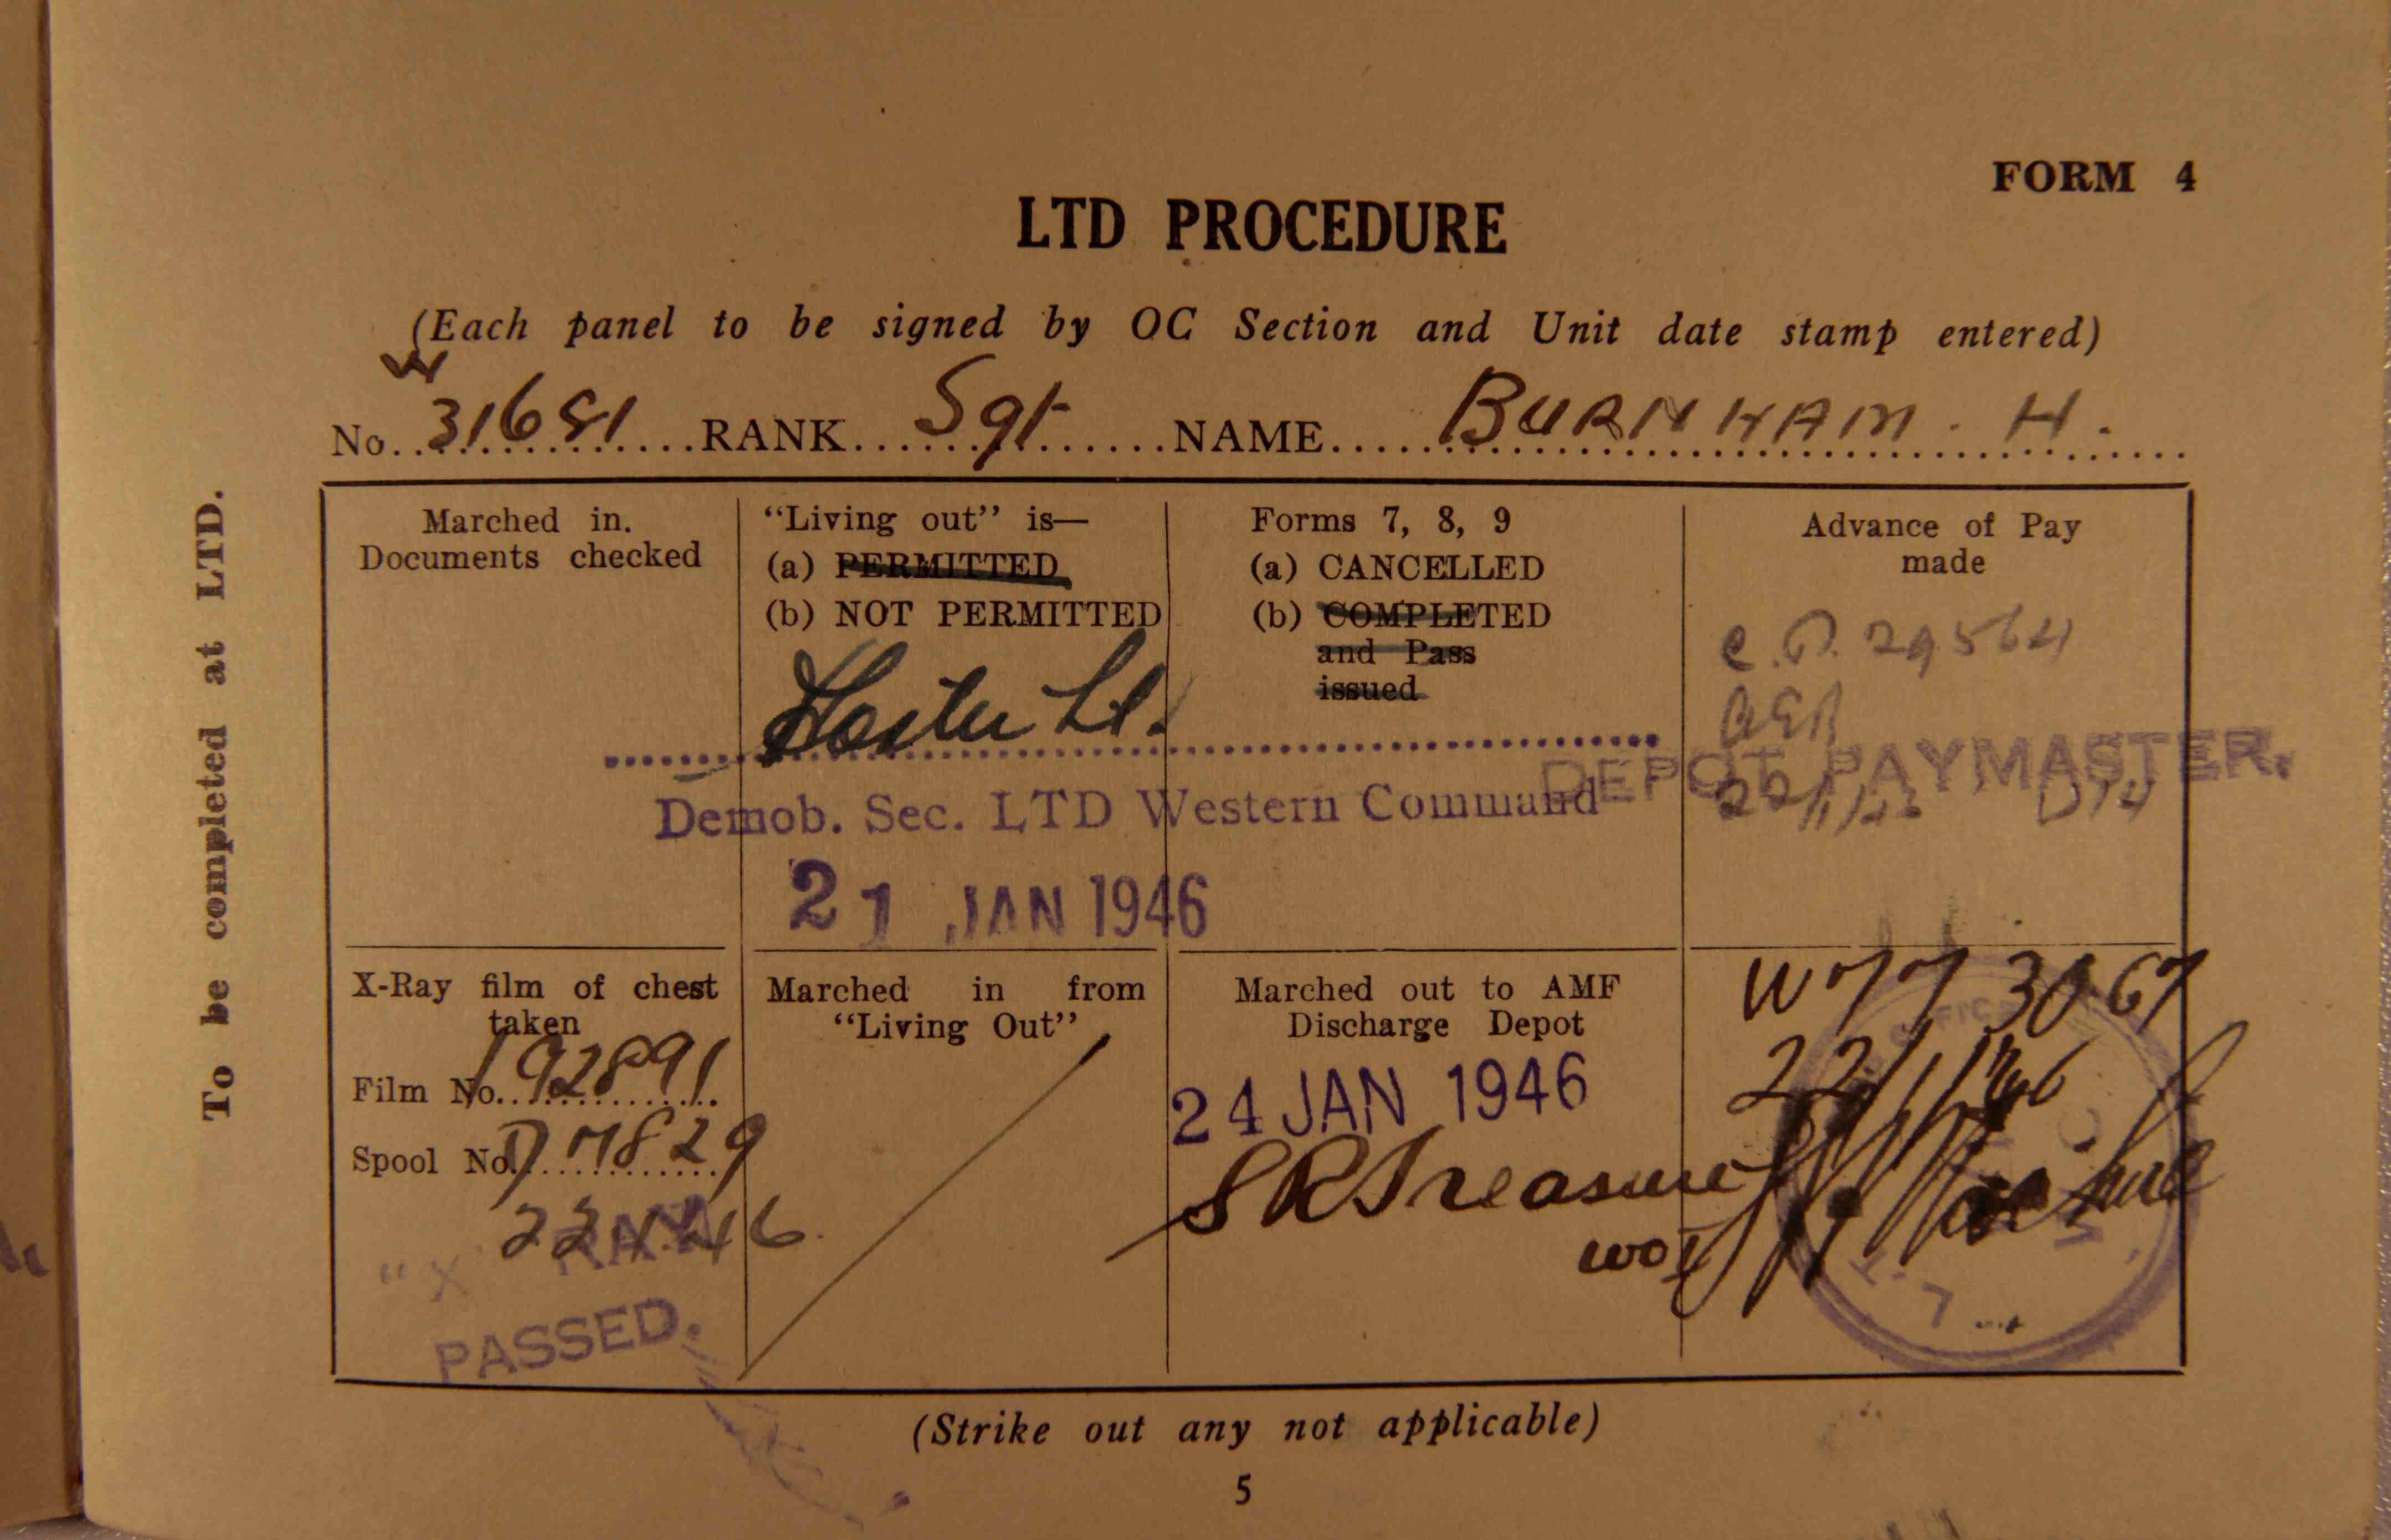 FORM 4
LTD PROCEDURE
(Each panel to be signed by OC Section and Unit date stamp entered)
W
No. 31681 RANK Sgt NAME BURNHAM. H.
To be completed at LTD.
Marched in.
Documents checked
"Living out" is—
(a) PERMITTED
(b) NOT PERMITTED
Lt.
Forms 7, 8, 9
(a) CANCELLED
(b) COMPLETED
and Pass
issued
Demob. Sec. LTD Western Command
21 JAN 1946
Advance of Pay
made
29564
DEPOT PAYMASTER.
X-Ray film of chest
taken
Film No. 192891
Spool No.
22.1.46.
"X" RAY
PASSED.
Marched in from
"Living Out"
Marched out to AMF
Discharge Depot
24 JAN 1946
S R Treasure
WO II
22/1/46
(Strike out any not applicable)
5